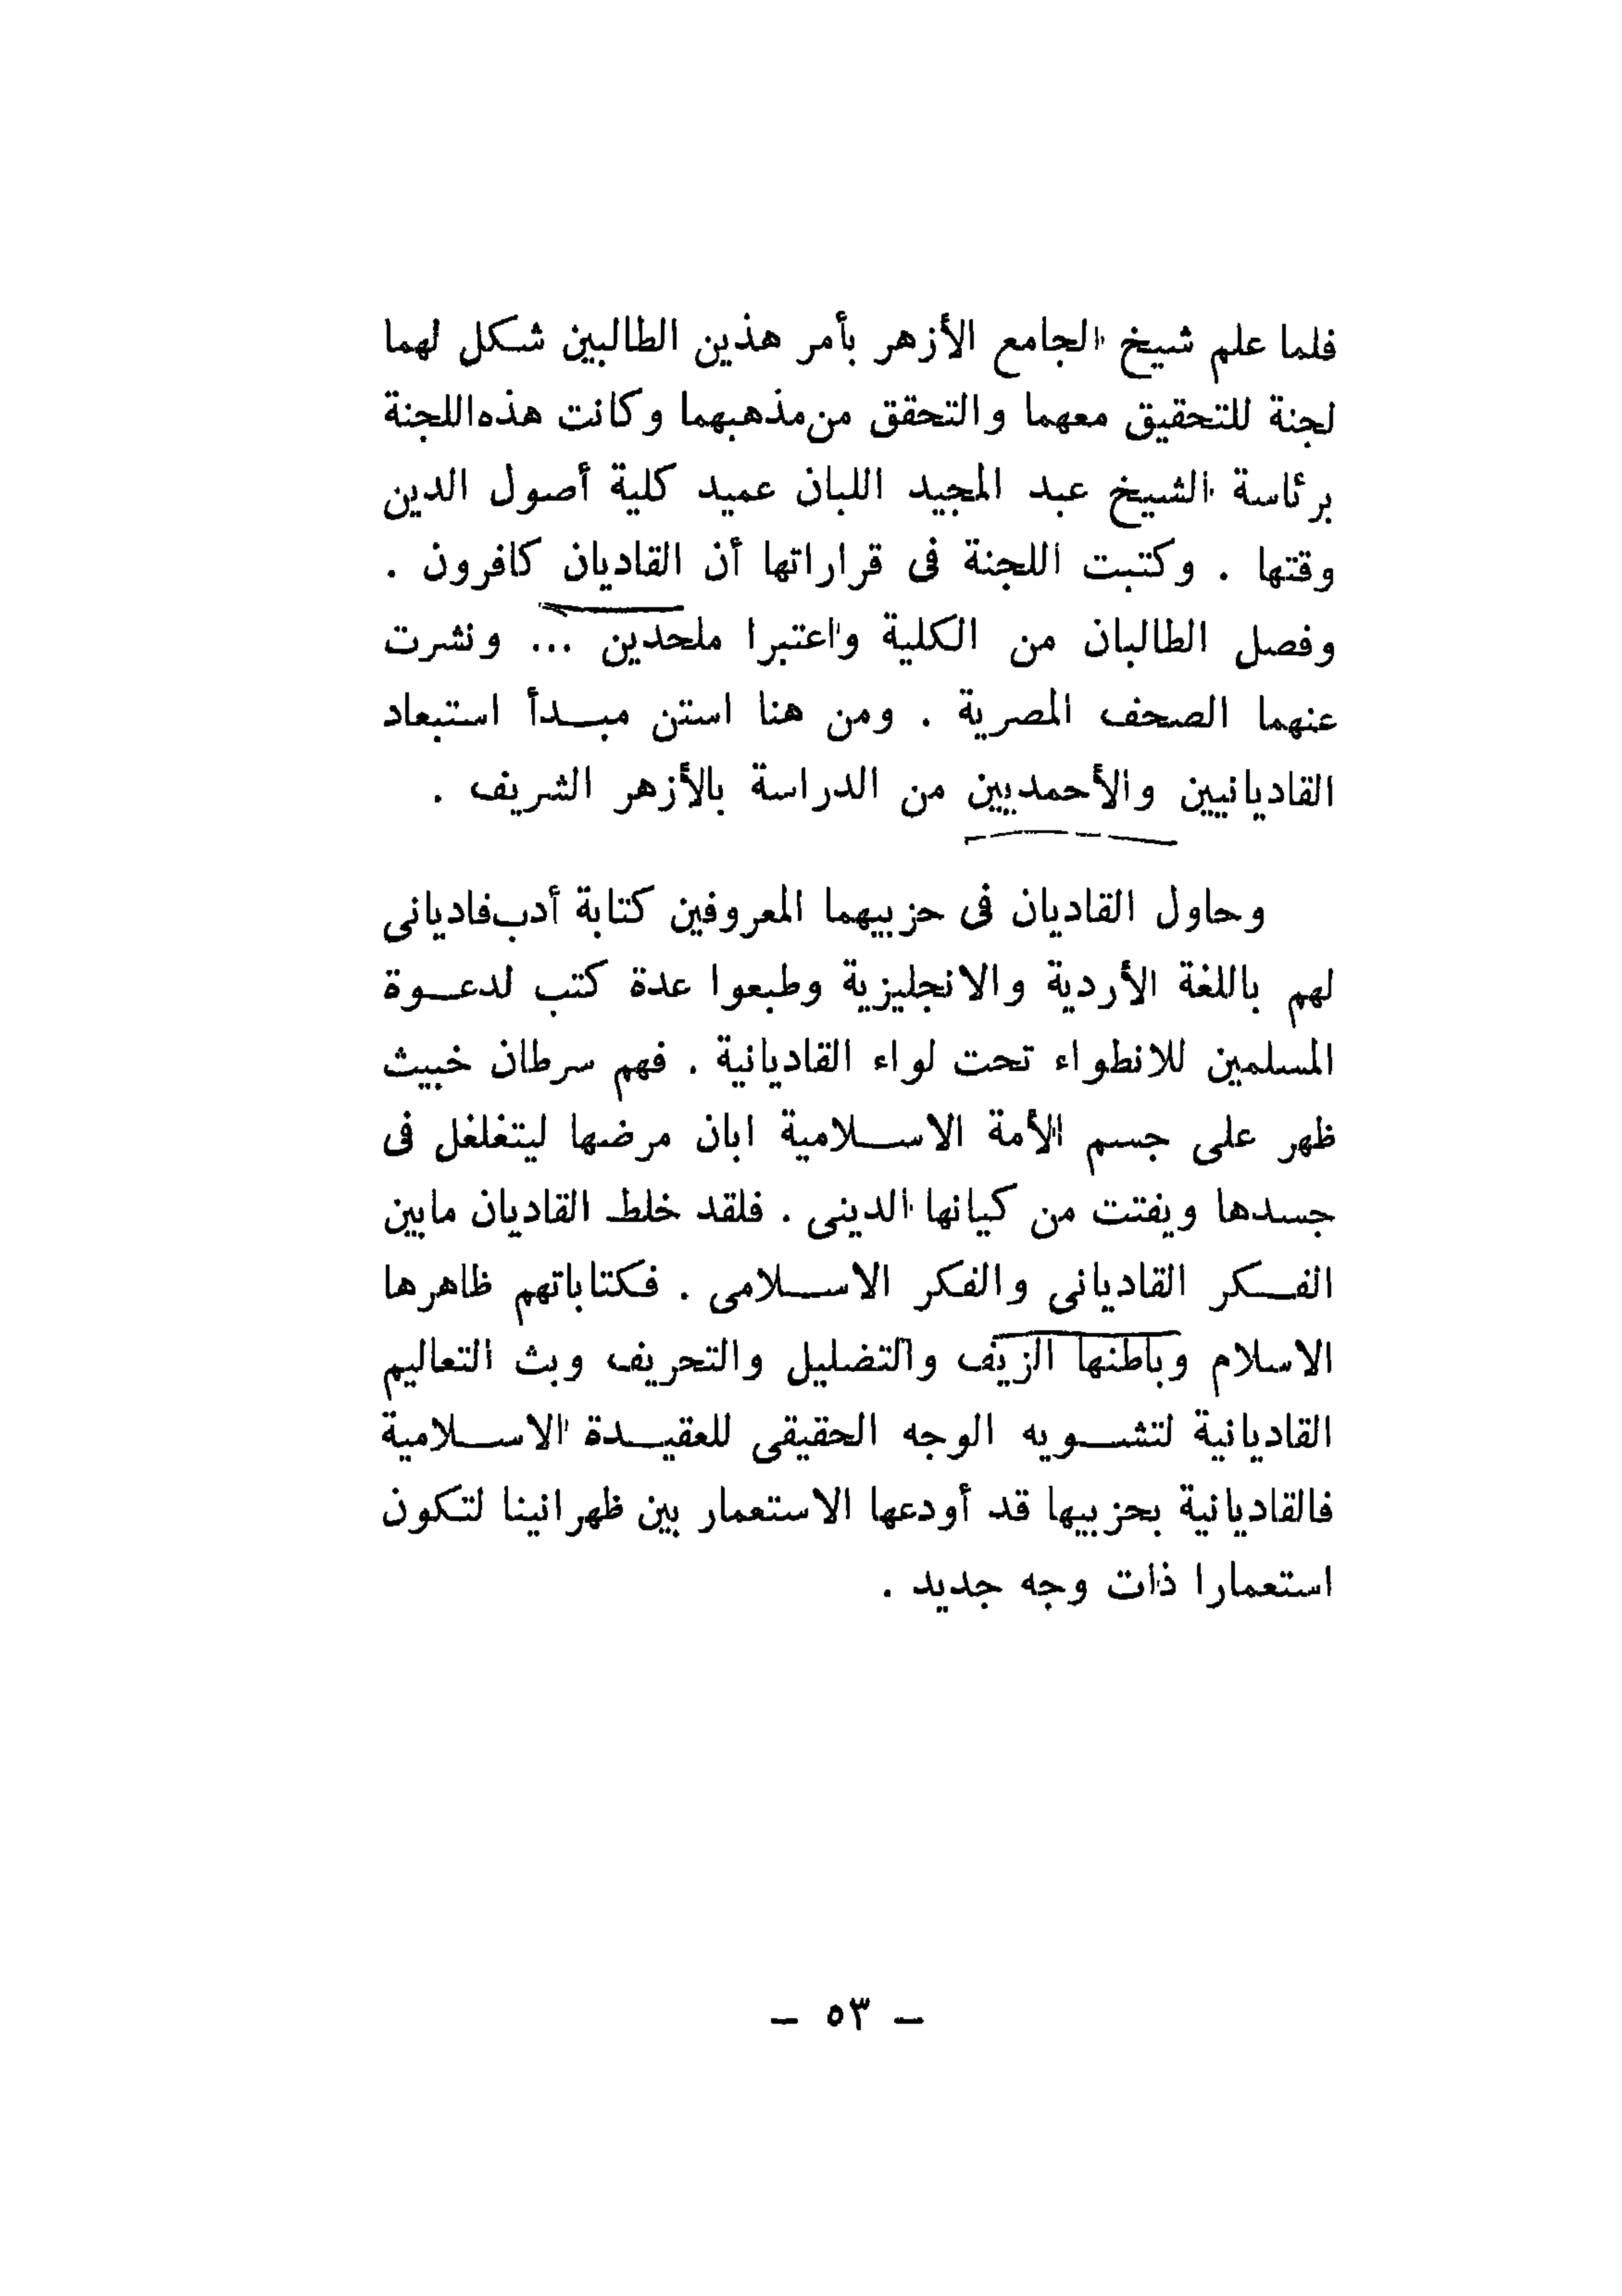 فلما علم شيخ الجامع الأزهر بأمر هذين الطالبين شكل لهما
لجنة للتحقيق معهما والتحقق من مذهبهما وكانت هذه اللجنة
برئاسة الشيخ عبد المجيد اللبان عميد كلية أصول الدين
وقتها . وكتبت اللجنة فى قراراتها أن القاديان كافرون .
وفصل الطالبان من الكلية واعتبرا ملحدين ... ونشرت
عنهما الصحف المصرية . ومن هنا استن مبدأ استبعاد
القاديانيين والأحمديين من الدراسة بالأزهر الشريف .
وحاول القاديان فى حزبيهما المعروفين كتابة أدب فاديانى
لهم باللغة الأردية والانجليزية وطبعوا عدة كتب لدعوة
المسلمين للانطواء تحت لواء القاديانية . فهم سرطان خبيث
ظهر على جسم الأمة الاسلامية ابان مرضها ليتغلغل فى
جسدها ويفتت من كيانها الدينى . فلقد خلط القاديان مابين
الفكر القاديانى والفكر الاسلامى . فكتاباتهم ظاهرها
الاسلام وباطنها الزيف والتضليل والتحريف وبث التعاليم
القاديانية لتشويه الوجه الحقيقى للعقيدة الاسلامية
فالقاديانية بحزبيها قد أودعها الاستعمار بين ظهرانينا لتكون
استعمارا ذات وجه جديد .
– ٥٣ –